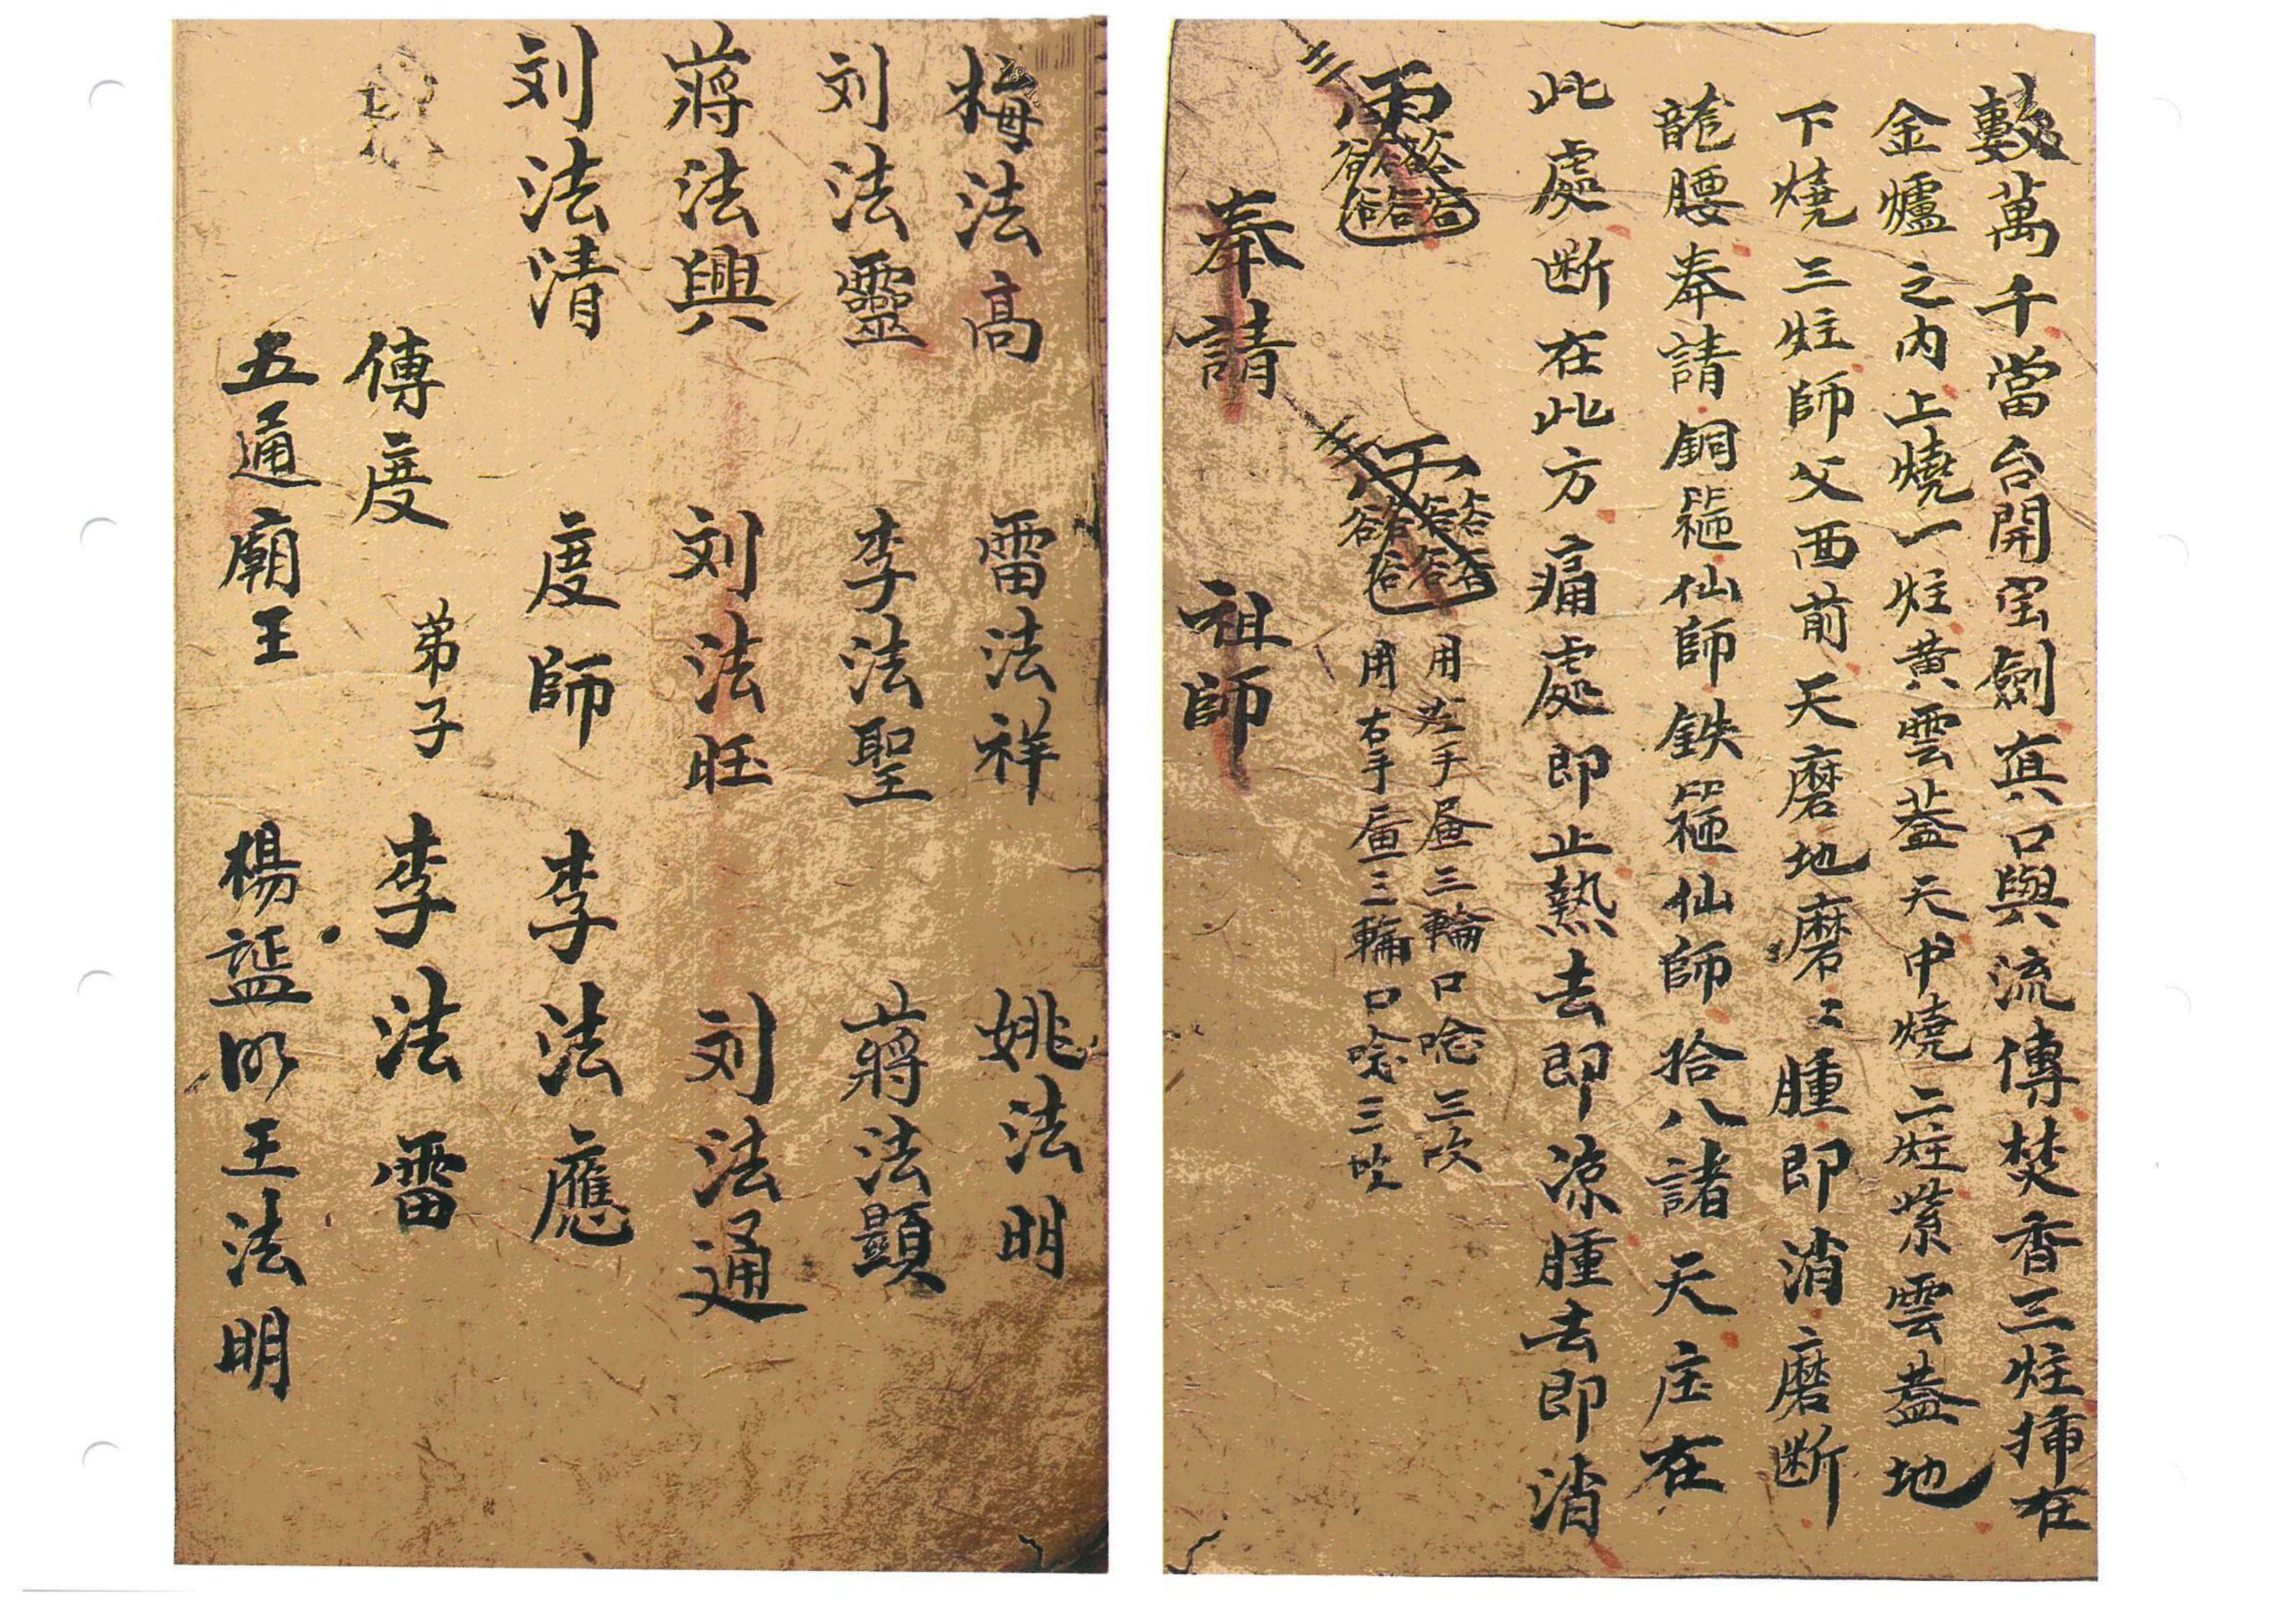 數萬千當台開寳劍真口與流傳焚香三炷揷在
金爐之內上燒一炷黄雲蓋天中燒二炷紫雲蓋地
下燒三炷師父西前天磨地磨〻腫即消磨断
龍腰奉請銅箍仙師鉄箍仙師拾八諸天庄在
此處断在此方痛處即止熱去即凉腫去即消
用左手 三輪口唸三吹
用右手 三輪口唸三吹
奉請 祖師
梅法高 雷法祥 姚法明
刘法靈 李法聖 蔣法顯
蔣法興 刘法旺 刘法通
刘法清 度師 李法應
傳度 弟子 李法雷
五通廟王 楊 明王法明